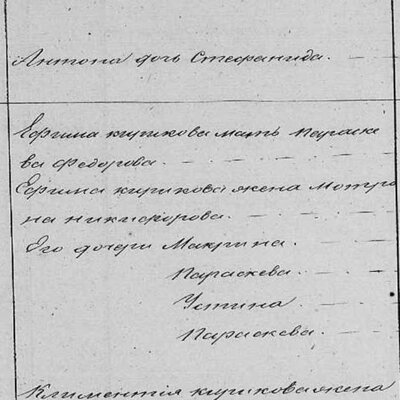 Антона дочь Стефанида.
Ефима Кушкова мать Параске
ва Федорова.
Ефима Кушкова жена Мотро
на Никифорова.
Его дочери Макрина.
Параскева.
Устина
Параскева.
Климентія Кушкова жена